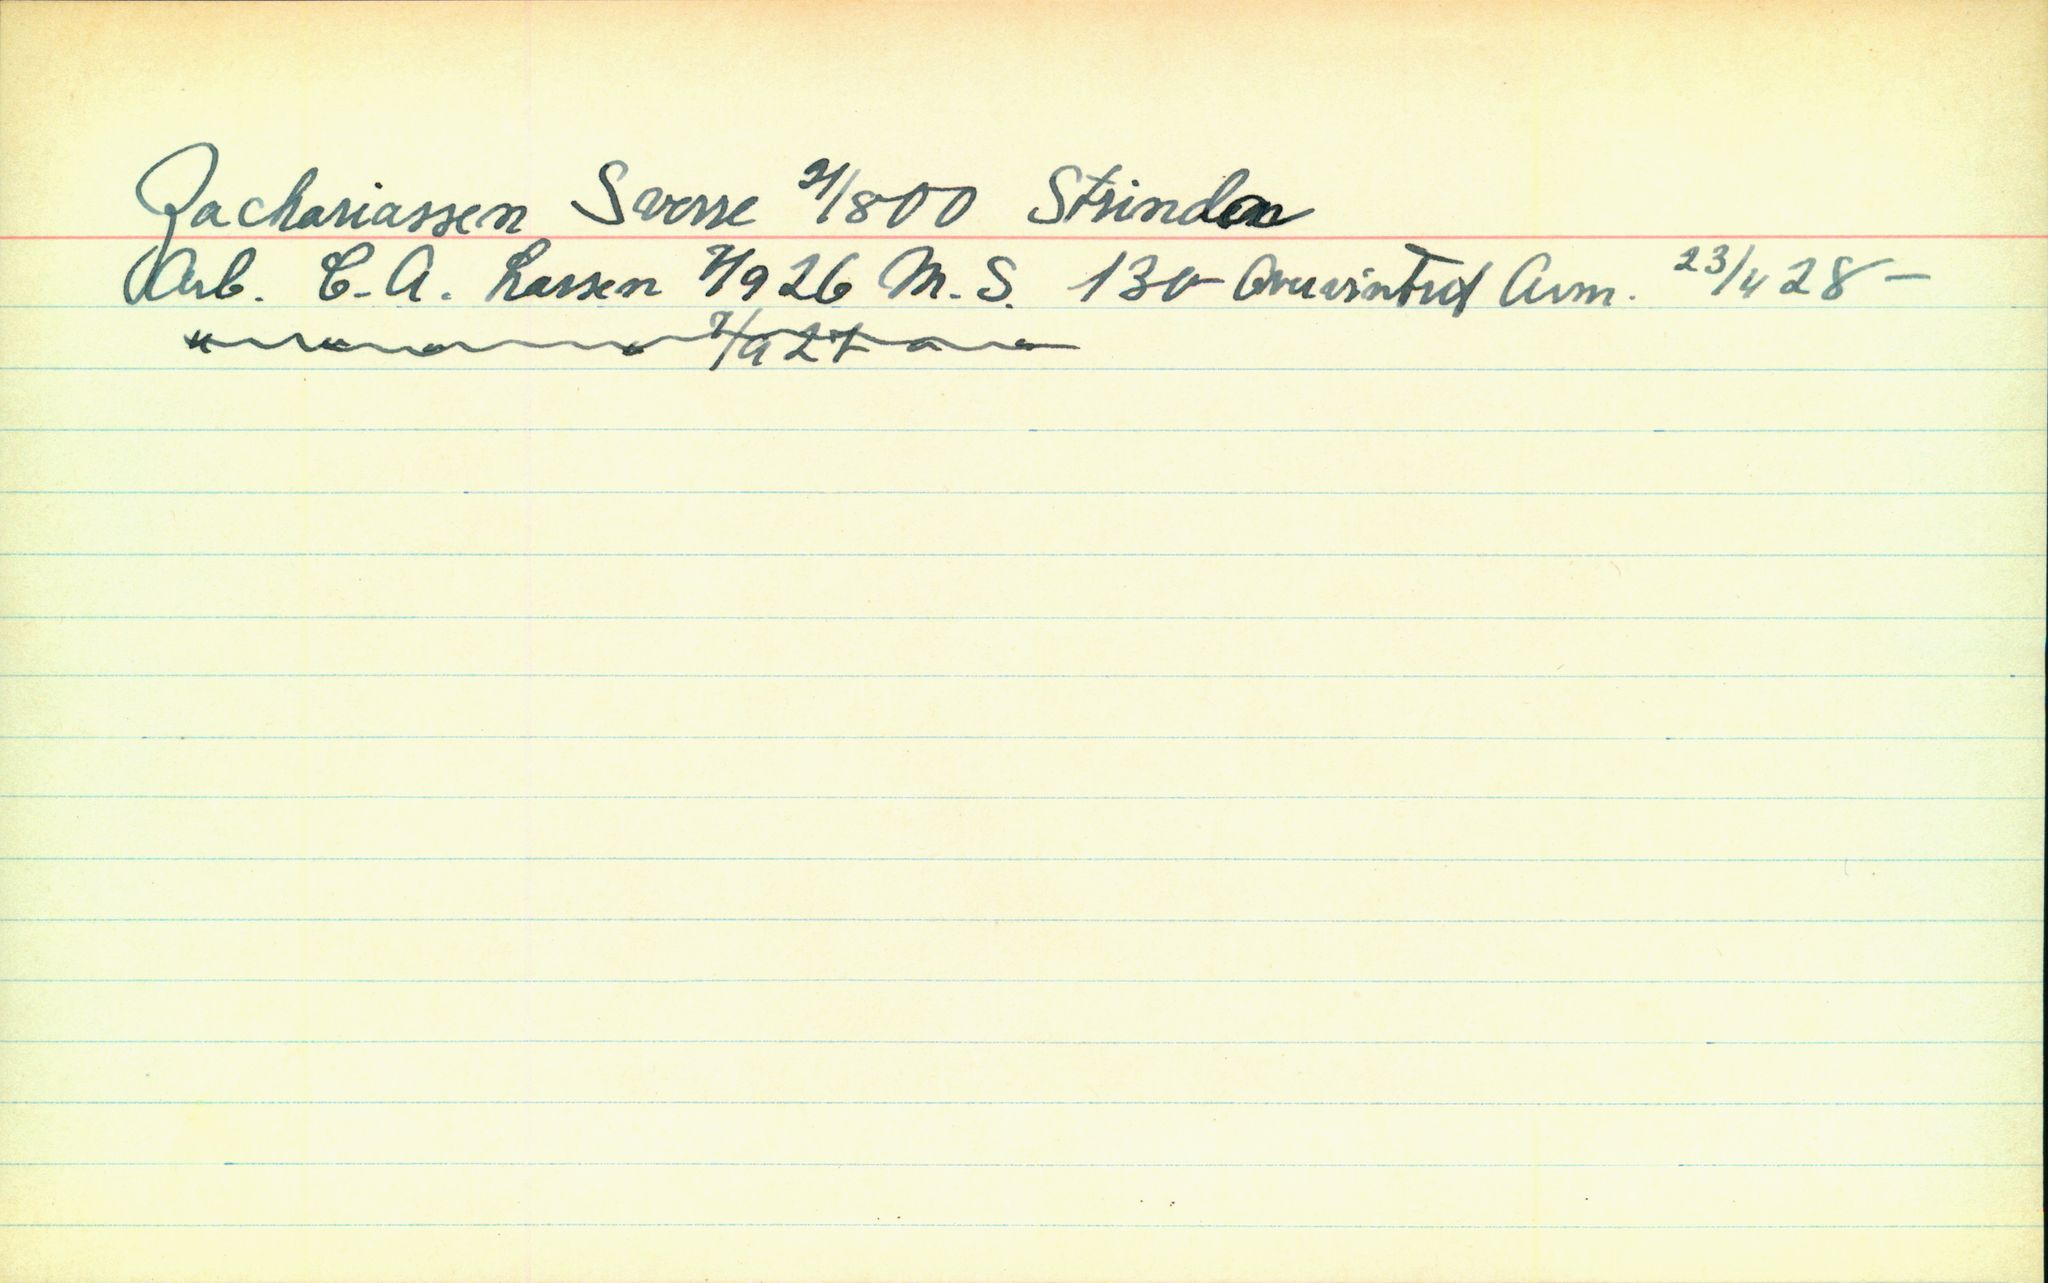 Zachariassen Sverre 2/8 00 Strinda
Arb. C. A. Larsen 7/9 26 M. S. 130 Overvintret Avm. 23/4 28 –
" 7/9 27